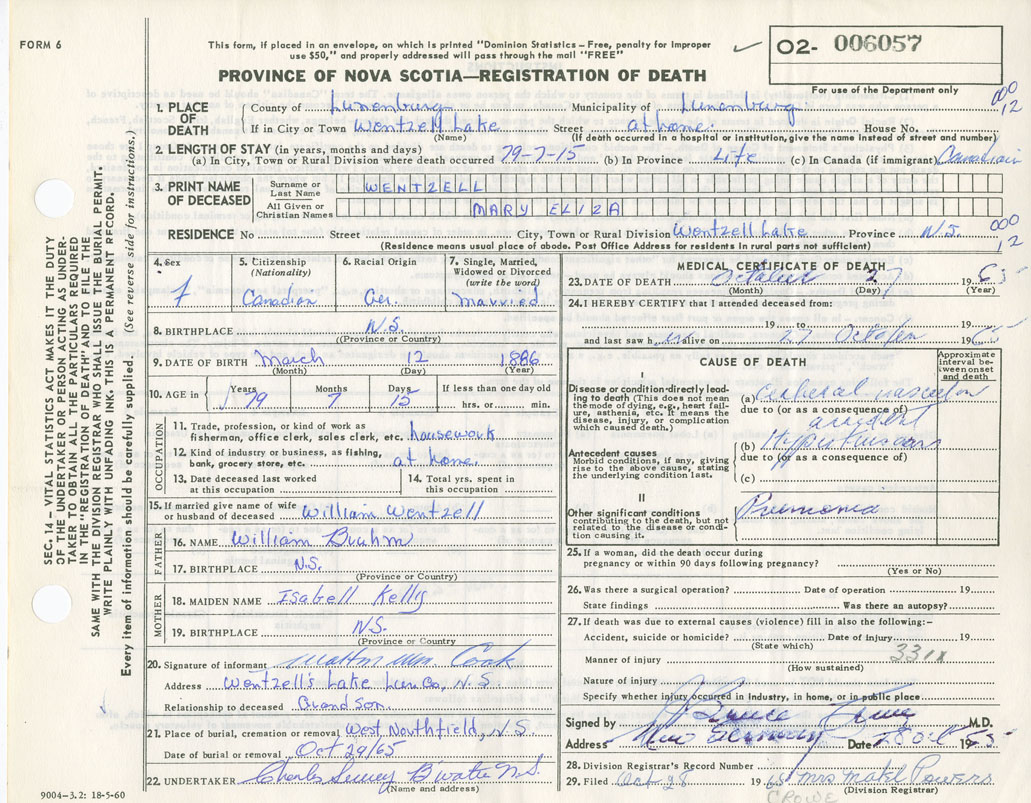 FORM 6
This form, if placed in an envelope, on which is printed "Dominion Statistics – Free, penalty for Improper
use $50," and properly addressed will pass through the mail "FREE"
PROVINCE OF NOVA SCOTIA—REGISTRATION OF DEATH
02- 006057
For use of the Department only
000
12
1. PLACE OF DEATH
County of Lunenburg Municipality of Lunenburg
If in City or Town Wentzell Lake Street at home House No.
(Name) (If death occurred in a hospital or institution, give the name instead of street and number)
2. LENGTH OF STAY (in years, months and days)
(a) In City, Town or Rural Division where death occurred 79-7-15 (b) In Province Life (c) In Canada (if immigrant) Canadian
3. PRINT NAME OF DECEASED
Surname or Last Name WENTZELL
All Given or Christian Names MARY ELIZA
RESIDENCE No Street City, Town or Rural Division Wentzell Lake Province N.S.
000
12
(Residence means usual place of abode. Post Office Address for residents in rural parts not sufficient)
4. Sex f
5. Citizenship (Nationality) Canadian
6. Racial Origin Ger.
7. Single, Married, Widowed or Divorced (write the word) Married
8. BIRTHPLACE N.S.
(Province or Country)
9. DATE OF BIRTH March 12 1886
(Month) (Day) (Year)
10. AGE in Years 79 Months 7 Days 15 If less than one day old hrs. or min.
OCCUPATION
11. Trade, profession, or kind of work as
fisherman, office clerk, sales clerk, etc. housework
12. Kind of industry or business, as fishing,
bank, grocery store, etc. at home.
13. Date deceased last worked
at this occupation
14. Total yrs. spent in
this occupation
15. If married give name of wife
or husband of deceased William Wentzell
FATHER
16. NAME William Bruhm
17. BIRTHPLACE N.S.
(Province or Country)
MOTHER
18. MAIDEN NAME Isabell Kelly
19. BIRTHPLACE N.S.
(Province or Country)
20. Signature of informant Cook
Address Wentzell's Lake Lun Co, N.S.
Relationship to deceased Grandson
21. Place of burial, cremation or removal West Northfield, N S
Date of burial or removal Oct 29/65
22. UNDERTAKER Charles B'water N.S.
(Name and address)
9004–3.2: 18-5-60
MEDICAL CERTIFICATE OF DEATH
23. DATE OF DEATH October 27 1965
(Month) (Day) (Year)
24. I HEREBY CERTIFY that I attended deceased from:
19 to 19
and last saw h alive on 27 October 196
CAUSE OF DEATH
Approximate interval between onset and death
I
Disease or condition directly leading to death (This does not mean the mode of dying, e.g., heart failure, asthenia, etc. It means the disease, injury, or complication which caused death).
(a) Cerebral vascular
due to (or as a consequence of)
accident
(b) Hypertension
due to (or as a consequence of)
(c)
Antecedent causes
Morbid conditions, if any, giving rise to the above cause, stating the underlying condition last.
II
Other significant conditions
contributing to the death, but not related to the disease or condition causing it.
Pneumonia
25. If a woman, did the death occur during
pregnancy or within 90 days following pregnancy?
(Yes or No)
26. Was there a surgical operation? Date of operation 19
State findings Was there an autopsy?
27. If death was due to external causes (violence) fill in also the following:–
Accident, suicide or homicide? Date of injury 19
(State which)
331x
Manner of injury
(How sustained)
Nature of injury
Specify whether injury occurred in Industry, in home, or in public place
Signed by M.D.
Address New Germany Date 28 Oct 1965
28. Division Registrar's Record Number
29. Filed Oct 28 1965 Mrs Mabel Powers
(Division Registrar)
CROWE
SEC. 14 – VITAL STATISTICS ACT MAKES IT THE DUTY
OF THE UNDERTAKER OR PERSON ACTING AS UNDER-
TAKER TO OBTAIN ALL THE PARTICULARS REQUIRED
IN THE "REGISTRATION OF DEATH" AND TO FILE THE
SAME WITH THE DIVISION REGISTRAR WHO SHALL ISSUE THE BURIAL PERMIT.
WRITE PLAINLY WITH UNFADING INK. THIS IS A PERMANENT RECORD.
Every item of information should be carefully supplied. (See reverse side for instructions.)